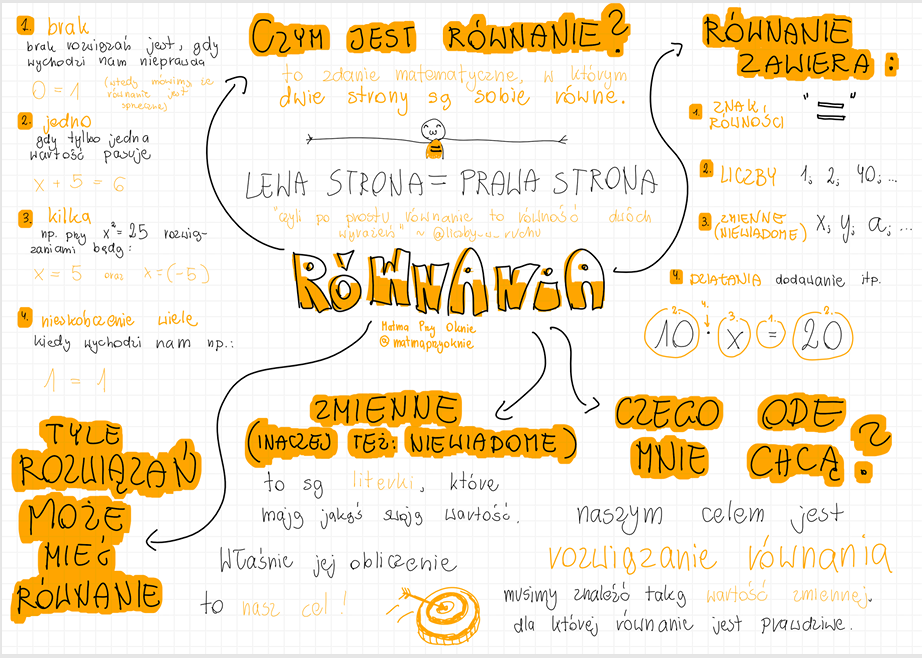 1. brak
brak rozwiązań jest, gdy
wychodzi nam nieprawda
0 = 1 (wtedy mówimy, że
równanie jest
sprzeczne)
2. jedno
gdy tylko jedna
wartość pasuje
x + 5 = 6
3. kilka
np. przy x² = 25 rozwią-
zaniami będą:
x = 5 oraz x = (-5)
4. nieskończenie wiele
kiedy wychodzi nam np.:
1 = 1
TYLE
ROZWIĄZAŃ
MOŻE
MIEĆ
RÓWNANIE
CZYM JEST RÓWNANIE?
to zdanie matematyczne, w którym
dwie strony są sobie równe.
LEWA STRONA = PRAWA STRONA
"czyli po prostu równanie to równość dwóch
wyrażeń" ~ @liczby_w_ruchu
RÓWNANIA
Matma Przy Oknie
@matmaprzyoknie
RÓWNANIE
ZAWIERA:
1. ZNAK "="
RÓWNOŚCI
2. LICZBY 1, 2, 40, ...
3. ZMIENNE x, y, a, ...
(NIEWIADOME)
4. DZIAŁANIA dodawanie itp.
2. 4. 3. 1. 2.
10 · x = 20
ZMIENNE
(INACZEJ TEŻ: NIEWIADOME)
to są literki, które
mają jakąś swoją wartość.
Właśnie jej obliczenie
to nasz cel!
CZEGO ODE
MNIE CHCĄ?
naszym celem jest
rozwiązanie równania
musimy znaleźć taką wartość zmiennej,
dla której równanie jest prawdziwe.